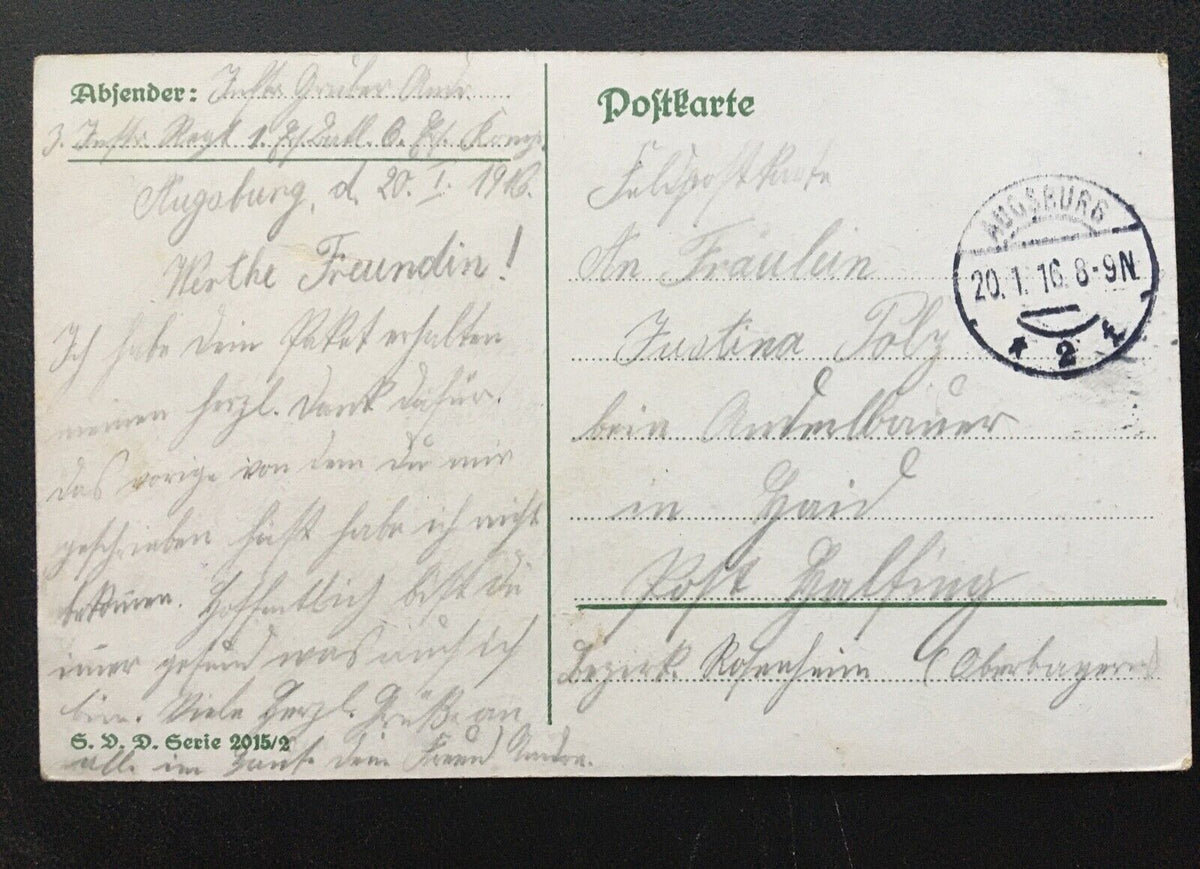 Absender: Inftr. Gruber Andr.
3. Inftr. Regt 1. Ers. Batl. 6. Ers. Komp.
Augsburg, d. 20. I. 1916.
Werthe Freundin!
Ich habe dein Paket erhalten
meinen herzl. Dank dafür.
das vorige von dem du mir
geschrieben hast habe ich nicht
bekomen. Hoffentlich bist du
imer gesund was auch ich
bin. Viele Herzl. Grüße an
alle im Hause dein Freund
S. V. D. Serie 2015/2
Postkarte
Feldpostkarte
An Fräulein
Justina Polz
bein
in Haid
Post Halfing
Bezirk Rosenheim (Oberbayern)
AUGSBURG
20. 1. 16. 8-9N.
* 2 *